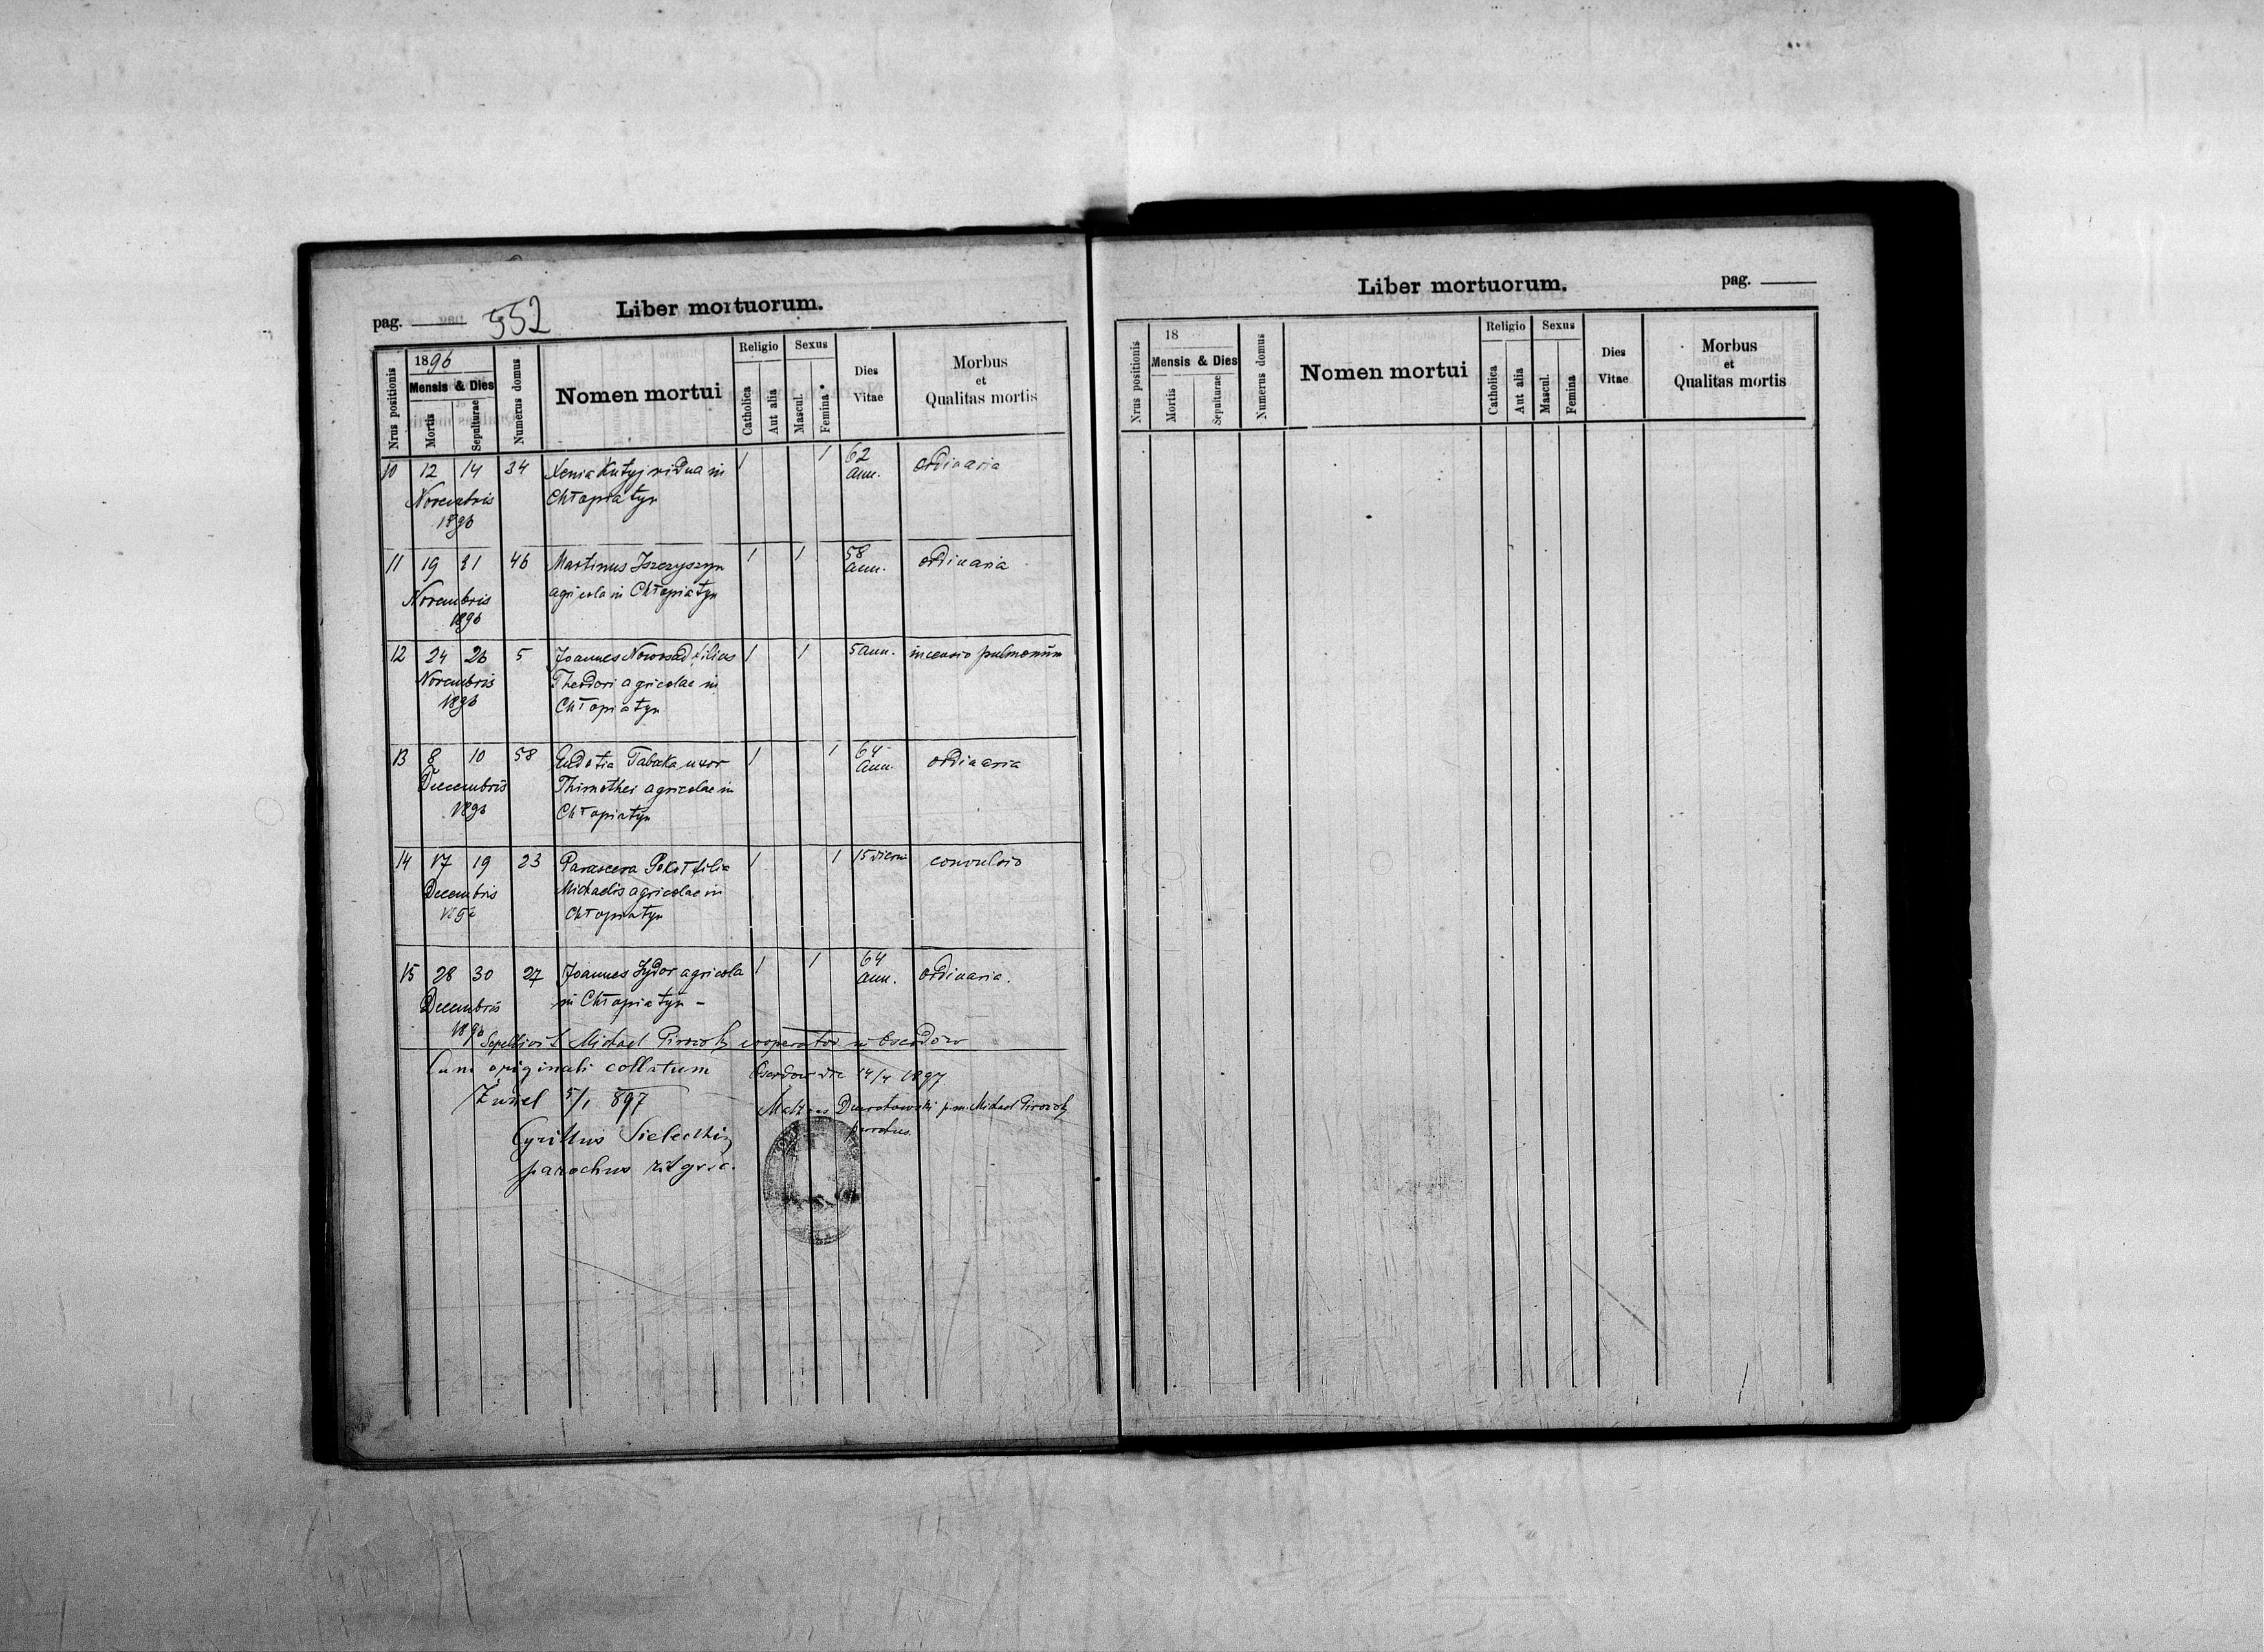 pag.
552
Liber mortuorum.
Nrus positionis
1896
Mensis & Dies
Mortis
Sepulturae
Numerus domus
Nomen mortui
Religio
Catholica
Aut alia
Sexus
Mascul.
Femina
Dies
Vitae
Morbus
et
Qualitas mortis
10 12 14 34 Xenia Kutyj vidua in 1 1 62 ordinaria
ann.
Novembris Chłopiatyn
1896
11 19 21 46 Martinus Iszczyszyn 1 1 58 ordinaria
ann.
agricola in Chłopiatyn
Novembris
1896
12 24 26 5 Joannes Nowosad filius 1 1 5 ann. incensio pulmonum
Novembris Theodori agricolae in
1896 Chłopiatyn
13 8 10 58 Eudotia Tabaka uxor 1 1 64 ordinaria
ann.
Decembris Thimothei agricolae in
1896 Chłopiatyn
14 17 19 23 Parasceva filia 1 1 15 dierum convulsio
Decembris Michaelis agricolae in
1896 Chłopiatyn
15 28 30 27 Joannes Sydor agricola 1 1 64 ordinaria.
ann.
Decembris in Chłopiatyn -
1896
Sepelivit Michael cooperator in Oserdów
Cum originali collatum
Żużel 5/1 897
Cyrillus Sielecki
parochus rit gr. c.
Oserdow die 14/4 1897
p.m. Michael
Liber mortuorum.
pag.
Nrus positionis
18
Mensis & Dies
Mortis
Sepulturae
Numerus domus
Nomen mortui
Religio
Catholica
Aut alia
Sexus
Mascul.
Femina
Dies
Vitae
Morbus
et
Qualitas mortis